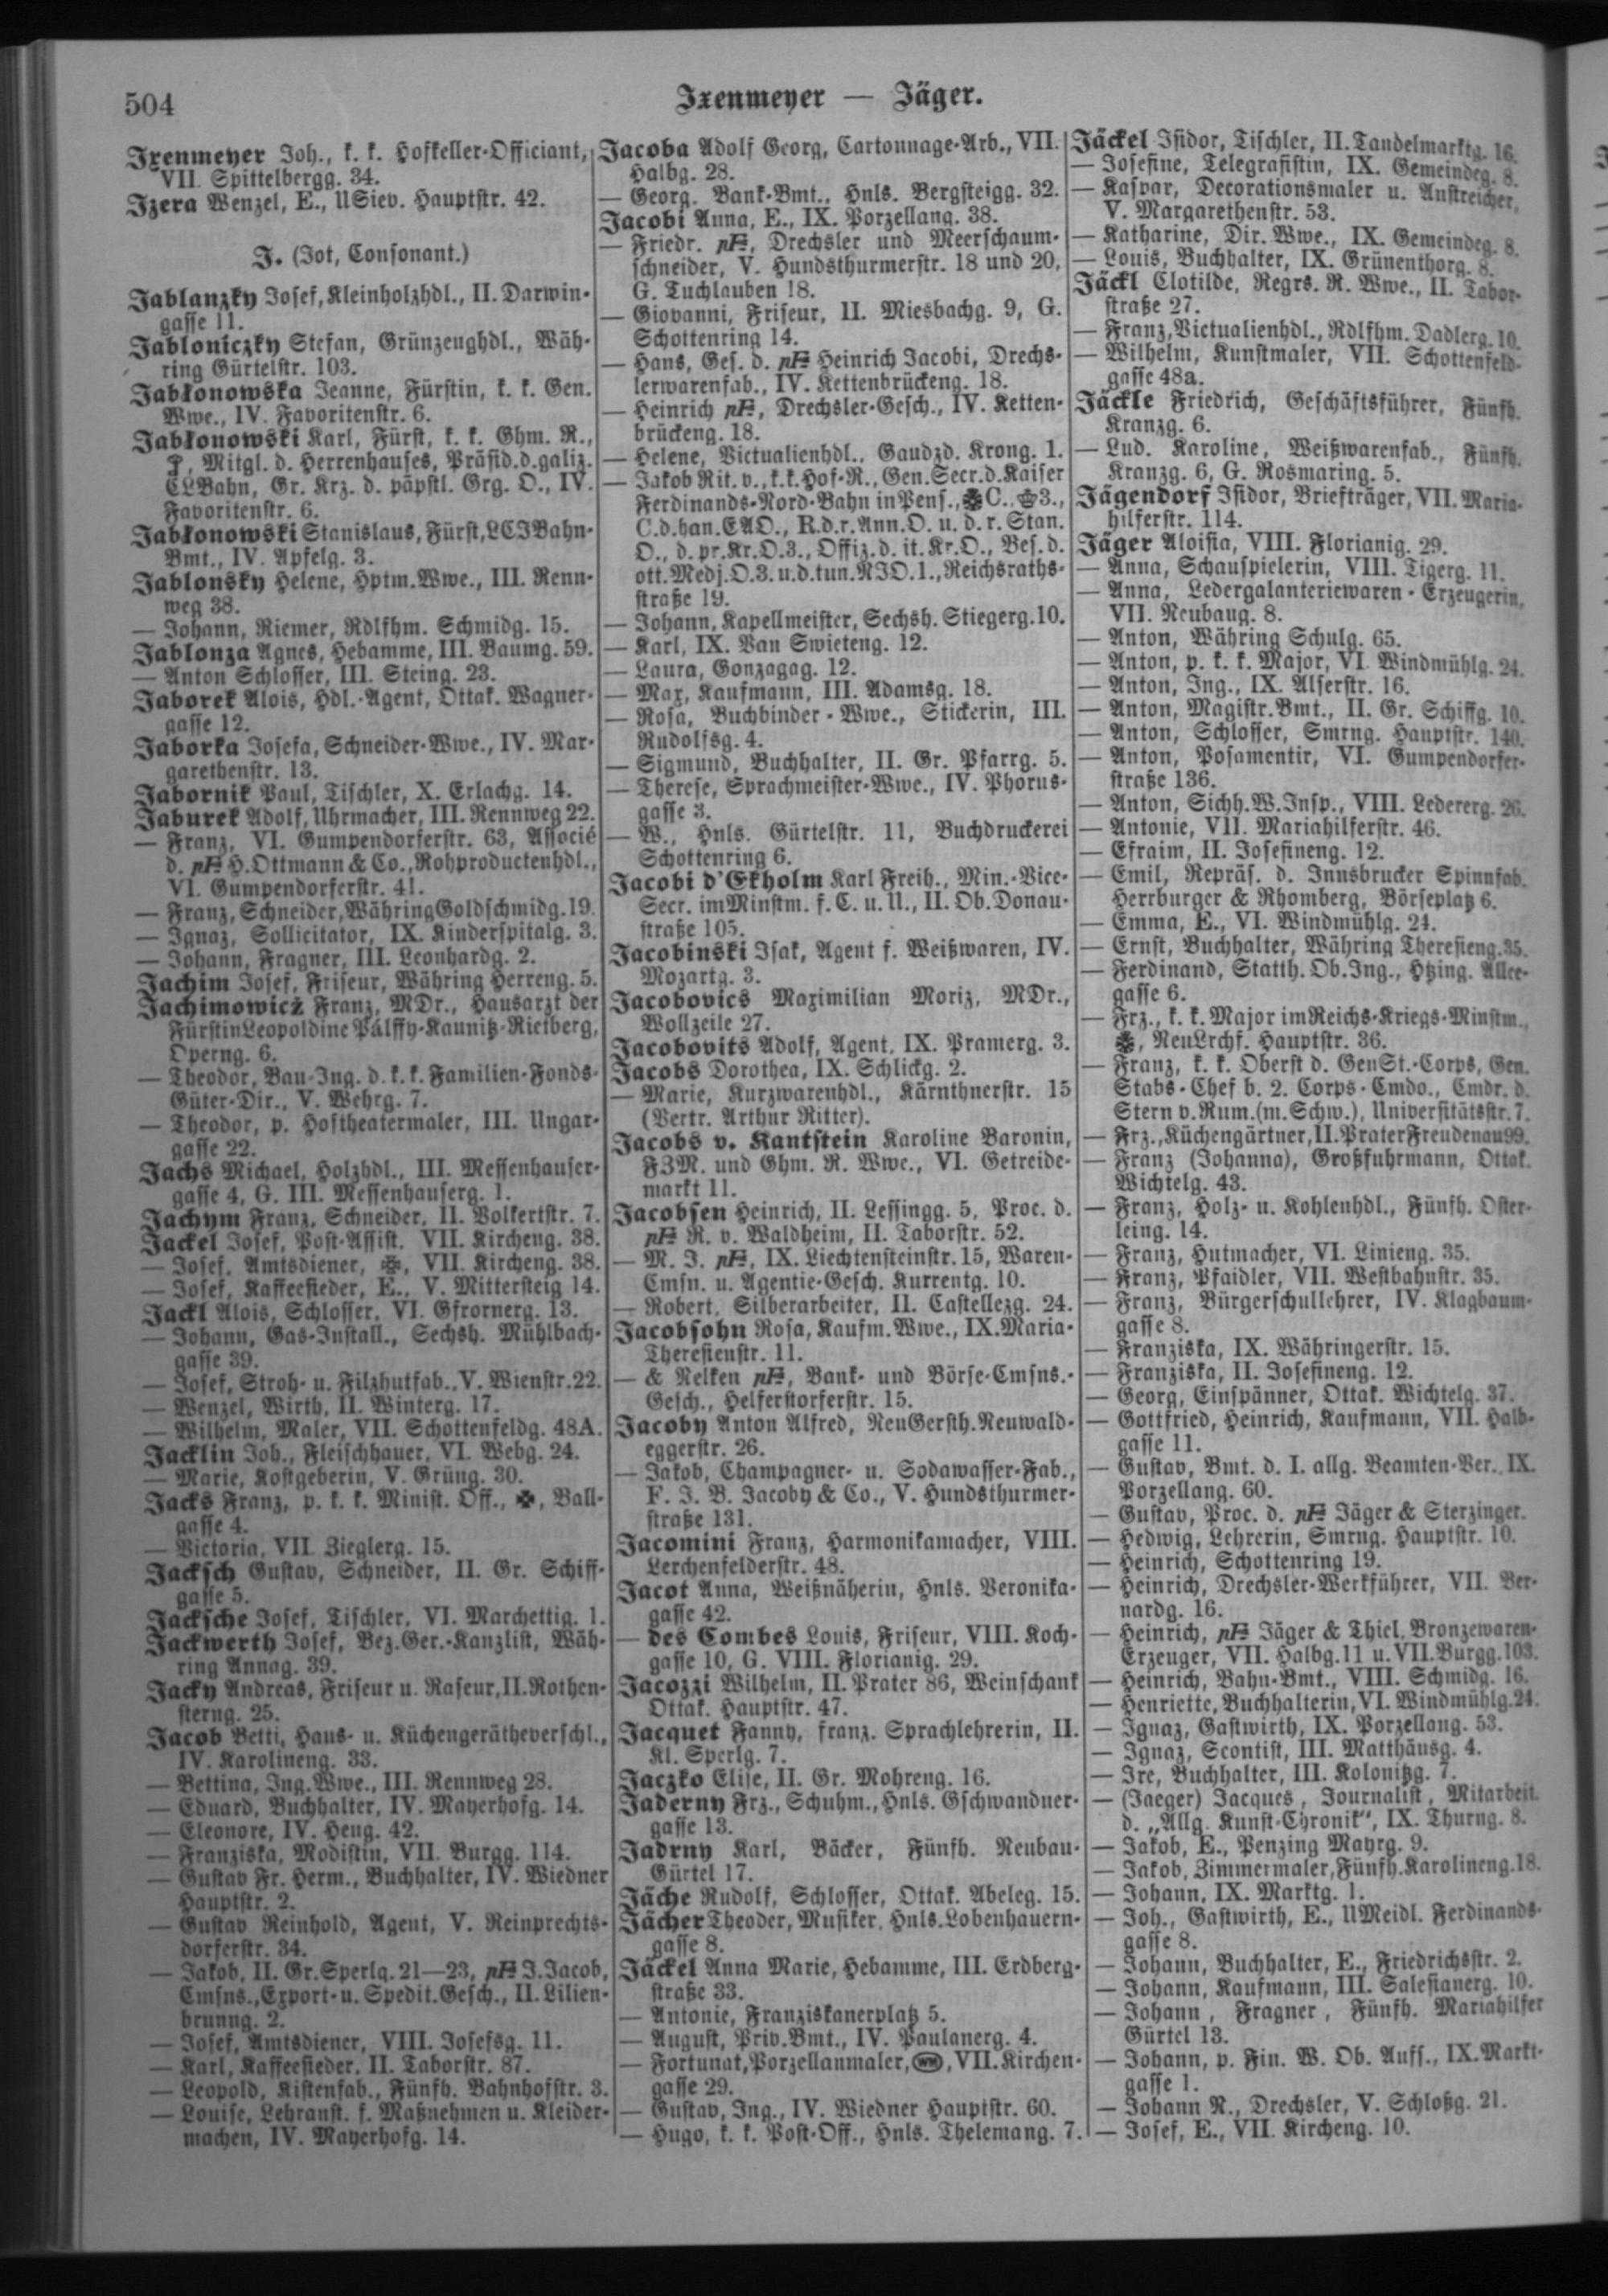 504
Ixenmeyer — Jäger.
Ixenmeyer Joh., k. k. Hofkeller-Officiant,
VII. Spittelbergg. 34.
Izera Wenzel, E., USiev. Hauptstr. 42.
J. (Jot, Consonant.)
Jablanzky Josef, Kleinholzhdl., II. Darwin-
gasse 11.
Jabloniczky Stefan, Grünzeughdl., Wäh-
ring Gürtelstr. 103.
Jabłonowska Jeanne, Fürstin, k. k. Gen.
Wwe., IV. Favoritenstr. 6.
Jabłonowski Karl, Fürst, k. k. Ghm. R.,
Mitgl. d. Herrenhauses, Präsid. d. galiz.
CLBahn, Gr. Krz. d. päpstl. Grg. O., IV.
Favoritenstr. 6.
Jabłonowski Stanislaus, Fürst, LCJBahn-
Bmt., IV. Apfelg. 3.
Jablonsky Helene, Hptm. Wwe., III. Renn-
weg 38.
— Johann, Riemer, Rdlfhm. Schmidg. 15.
Jablonza Agnes, Hebamme, III. Baumg. 59.
— Anton Schlosser, III. Steing. 23.
Jaborek Alois, Hdl.-Agent, Ottak. Wagner-
gasse 12.
Jaborka Josefa, Schneider-Wwe., IV. Mar-
garethenstr. 13.
Jabornik Paul, Tischler, X. Erlachg. 14.
Jaburek Adolf, Uhrmacher, III. Rennweg 22.
— Franz, VI. Gumpendorferstr. 63, Associé
d. pF H. Ottmann & Co., Rohproductenhdl.,
VI. Gumpendorferstr. 41.
— Franz, Schneider, Währing Goldschmidg. 19.
— Ignaz, Sollicitator, IX. Kinderspitalg. 3.
— Johann, Fragner, III. Leonhardg. 2.
Jachim Josef, Friseur, Währing Herreng. 5.
Jachimowicz Franz, MDr., Hausarzt der
Fürstin Leopoldine Pálffy-Kaunitz-Rietberg,
Operng. 6.
— Theodor, Bau-Ing. d. k. k. Familien-Fonds-
Güter-Dir., V. Wehrg. 7.
— Theodor, p. Hoftheatermaler, III. Ungar-
gasse 22.
Jachs Michael, Holzhdl., III. Messenhauser-
gasse 4, G. III. Messenhauserg. 1.
Jachym Franz, Schneider, II. Volkertstr. 7.
Jackel Josef, Post-Assist. VII. Kircheng. 38.
— Josef, Amtsdiener, ✠, VII. Kircheng. 38.
— Josef, Kaffeesieder, E., V. Mittersteig 14.
Jackl Alois, Schlosser, VI. Gfrornerg. 13.
— Johann, Gas-Install., Sechsh. Mühlbach-
gasse 39.
— Josef, Stroh- u. Filzhutfab., V. Wienstr. 22.
— Wenzel, Wirth, II. Winterg. 17.
— Wilhelm, Maler, VII. Schottenfeldg. 48A.
Jacklin Joh., Fleischhauer, VI. Webg. 24.
— Marie, Kostgeberin, V. Grüng. 30.
Jacks Franz, p. k. k. Minist. Off., ✠, Ball-
gasse 4.
— Victoria, VII. Zieglerg. 15.
Jacksch Gustav, Schneider, II. Gr. Schiff-
gasse 5.
Jacksche Josef, Tischler, VI. Marchettig. 1.
Jackwerth Josef, Bez. Ger.-Kanzlist, Wäh-
ring Annag. 39.
Jacky Andreas, Friseur u. Raseur, II. Rothen-
sterng. 25.
Jacob Betti, Haus- u. Küchengerätheverschl.,
IV. Karolineng. 33.
— Bettina, Ing. Wwe., III. Rennweg 28.
— Eduard, Buchhalter, IV. Mayerhofg. 14.
— Eleonore, IV. Heug. 42.
— Franziska, Modistin, VII. Burgg. 114.
— Gustav Fr. Herm., Buchhalter, IV. Wiedner
Hauptstr. 2.
— Gustav Reinhold, Agent, V. Reinprechts-
dorferstr. 34.
— Jakob, II. Gr. Sperlg. 21—23, pF J. Jacob,
Cmsns., Export- u. Spedit. Gesch., II. Lilien-
brunng. 2.
— Josef, Amtsdiener, VIII. Josefsg. 11.
— Karl, Kaffeesieder, II. Taborstr. 87.
— Leopold, Kistenfab., Fünfh. Bahnhofstr. 3.
— Louise, Lehranst. f. Maßnehmen u. Kleider-
machen, IV. Mayerhofg. 14.
Jacoba Adolf Georg, Cartonnage-Arb., VII.
Halbg. 28.
— Georg, Bank-Bmt., Hnls. Bergsteigg. 32.
Jacobi Anna, E., IX. Porzellang. 38.
— Friedr. pF, Drechsler und Meerschaum-
schneider, V. Hundsthurmerstr. 18 und 20,
G. Tuchlauben 18.
— Giovanni, Friseur, II. Miesbachg. 9, G.
Schottenring 14.
— Hans, Ges. d. pF Heinrich Jacobi, Drechs-
lerwarenfab., IV. Kettenbrückeng. 18.
— Heinrich pF, Drechsler-Gesch., IV. Ketten-
brückeng. 18.
— Helene, Victualienhdl., Gaudzd. Krong. 1.
— Jakob Rit. v., k. k. Hof-R., Gen. Secr. d. Kaiser
Ferdinands-Nord-Bahn in Pens., ✠C., 3.,
C. d. han. EAO., R. d. r. Ann. O. u. d. r. Stan.
O., d. pr. Kr. O. 3., Offiz. d. it. Kr. O., Bes. d.
ott. Medj. O. 3. u. d. tun. NJO. 1., Reichsraths-
straße 19.
— Johann, Kapellmeister, Sechsh. Stiegerg. 10.
— Karl, IX. Van Swieteng. 12.
— Laura, Gonzagag. 12.
— Max, Kaufmann, III. Adamsg. 18.
— Rosa, Buchbinder-Wwe., Stickerin, III.
Rudolfsg. 4.
— Sigmund, Buchhalter, II. Gr. Pfarrg. 5.
— Therese, Sprachmeister-Wwe., IV. Phorus-
gasse 3.
— W., Hnls. Gürtelstr. 11, Buchdruckerei
Schottenring 6.
Jacobi d'Ekholm Karl Freih., Min.-Vice-
Secr. im Minstm. f. C. u. U., II. Ob. Donau-
straße 105.
Jacobinski Isak, Agent f. Weißwaren, IV.
Mozartg. 3.
Jacobovics Maximilian Moriz, MDr.,
Wollzeile 27.
Jacobovits Adolf, Agent, IX. Pramerg. 3.
Jacobs Dorothea, IX. Schlickg. 2.
— Marie, Kurzwarenhdl., Kärnthnerstr. 15
(Vertr. Arthur Ritter).
Jacobs v. Kantstein Karoline Baronin,
FZM. und Ghm. R. Wwe., VI. Getreide-
markt 11.
Jacobsen Heinrich, II. Lessingg. 5, Proc. d.
pF R. v. Waldheim, II. Taborstr. 52.
— M. J. pF, IX. Liechtensteinstr. 15, Waren-
Cmsn. u. Agentie-Gesch. Kurrentg. 10.
— Robert, Silberarbeiter, II. Castellezg. 24.
Jacobsohn Rosa, Kaufm. Wwe., IX. Maria-
Theresienstr. 11.
— & Nelken pF, Bank- und Börse-Cmsns.-
Gesch., Helferstorferstr. 15.
Jacoby Anton Alfred, NeuGersth. Neuwald-
eggerstr. 26.
— Jakob, Champagner- u. Sodawasser-Fab.,
F. J. B. Jacoby & Co., V. Hundsthurmer-
straße 131.
Jacomini Franz, Harmonikamacher, VIII.
Lerchenfelderstr. 48.
Jacot Anna, Weißnäherin, Hnls. Veronika-
gasse 42.
— des Combes Louis, Friseur, VIII. Koch-
gasse 10, G. VIII. Florianig. 29.
Jacozzi Wilhelm, II. Prater 86, Weinschank
Ottak. Hauptstr. 47.
Jacquet Fanny, franz. Sprachlehrerin, II.
Kl. Sperlg. 7.
Jaczko Elise, II. Gr. Mohreng. 16.
Jaderny Frz., Schuhm., Hnls. Gschwandner-
gasse 13.
Jadrny Karl, Bäcker, Fünfh. Neubau-
Gürtel 17.
Jäche Rudolf, Schlosser, Ottak. Abeleg. 15.
Jächer Theoder, Musiker, Hnls. Lobenhauern-
gasse 8.
Jäckel Anna Marie, Hebamme, III. Erdberg-
straße 33.
— Antonie, Franziskanerplatz 5.
— August, Priv. Bmt., IV. Paulanerg. 4.
— Fortunat, Porzellanmaler, WM, VII. Kirchen-
gasse 29.
— Gustav, Ing., IV. Wiedner Hauptstr. 60.
— Hugo, k. k. Post-Off., Hnls. Thelemang. 7.
Jäckel Isidor, Tischler, II. Tandelmarktg. 16.
— Josefine, Telegrafistin, IX. Gemeindeg. 8.
— Kaspar, Decorationsmaler u. Anstreicher,
V. Margarethenstr. 53.
— Katharine, Dir. Wwe., IX. Gemeindeg. 8.
— Louis, Buchhalter, IX. Grünenthorg. 8.
Jäckl Clotilde, Regrs. R. Wwe., II. Tabor-
straße 27.
— Franz, Victualienhdl., Rdlfhm. Dadlerg. 10.
— Wilhelm, Kunstmaler, VII. Schottenfeld-
gasse 48a.
Jäckle Friedrich, Geschäftsführer, Fünfh.
Kranzg. 6.
— Lud. Karoline, Weißwarenfab., Fünfh.
Kranzg. 6, G. Rosmaring. 5.
Jägendorf Isidor, Briefträger, VII. Maria-
hilferstr. 114.
Jäger Aloisia, VIII. Florianig. 29.
— Anna, Schauspielerin, VIII. Tigerg. 11.
— Anna, Ledergalanteriewaren-Erzeugerin,
VII. Neubaug. 8.
— Anton, Währing Schulg. 65.
— Anton, p. k. k. Major, VI. Windmühlg. 24.
— Anton, Ing., IX. Alserstr. 16.
— Anton, Magistr. Bmt., II. Gr. Schiffg. 10.
— Anton, Schlosser, Smrng. Hauptstr. 140.
— Anton, Posamentir, VI. Gumpendorfer-
straße 136.
— Anton, Sichh. W. Insp., VIII. Ledererg. 26.
— Antonie, VII. Mariahilferstr. 46.
— Efraim, II. Josefineng. 12.
— Emil, Repräs. d. Innsbrucker Spinnfab.
Herrburger & Rhomberg, Börseplatz 6.
— Emma, E., VI. Windmühlg. 24.
— Ernst, Buchhalter, Währing Theresieng. 35.
— Ferdinand, Statth. Ob. Ing., Htzing. Allee-
gasse 6.
— Frz., k. k. Major im Reichs-Kriegs-Minstm.,
✠, NeuLrchf. Hauptstr. 36.
— Franz, k. k. Oberst d. GenSt.-Corps, Gen.
Stabs-Chef b. 2. Corps-Cmdo., Cmdr. d.
Stern v. Rum. (m. Schw.), Universitätsstr. 7.
— Frz., Küchengärtner, II. Prater Freudenau 99.
— Franz (Johanna), Großfuhrmann, Ottak.
Wichtelg. 43.
— Franz, Holz- u. Kohlenhdl., Fünfh. Oster-
leing. 14.
— Franz, Hutmacher, VI. Linieng. 35.
— Franz, Pfaidler, VII. Westbahnstr. 35.
— Franz, Bürgerschullehrer, IV. Klagbaum-
gasse 8.
— Franziska, IX. Währingerstr. 15.
— Franziska, II. Josefineng. 12.
— Georg, Einspänner, Ottak. Wichtelg. 37.
— Gottfried, Heinrich, Kaufmann, VII. Halb-
gasse 11.
— Gustav, Bmt. d. I. allg. Beamten-Ver., IX.
Porzellang. 60.
— Gustav, Proc. d. pF Jäger & Sterzinger.
— Hedwig, Lehrerin, Smrng. Hauptstr. 10.
— Heinrich, Schottenring 19.
— Heinrich, Drechsler-Werkführer, VII. Ber-
nardg. 16.
— Heinrich, pF Jäger & Thiel, Bronzewaren-
Erzeuger, VII. Halbg. 11 u. VII. Burgg. 103.
— Heinrich, Bahn-Bmt., VIII. Schmidg. 16.
— Henriette, Buchhalterin, VI. Windmühlg. 24.
— Ignaz, Gastwirth, IX. Porzellang. 53.
— Ignaz, Scontist, III. Matthäusg. 4.
— Ire, Buchhalter, III. Kolonitzg. 7.
— (Jaeger) Jacques, Journalist, Mitarbeit.
d. „Allg. Kunst-Chronik“, IX. Thurng. 8.
— Jakob, E., Penzing Mayrg. 9.
— Jakob, Zimmermaler, Fünfh. Karolineng. 18.
— Johann, IX. Marktg. 1.
— Joh., Gastwirth, E., UMeidl. Ferdinands-
gasse 8.
— Johann, Buchhalter, E., Friedrichsstr. 2.
— Johann, Kaufmann, III. Salesianerg. 10.
— Johann, Fragner, Fünfh. Mariahilfer
Gürtel 13.
— Johann, p. Fin. W. Ob. Aufs., IX. Markt-
gasse 1.
— Johann N., Drechsler, V. Schloßg. 21.
— Josef, E., VII. Kircheng. 10.